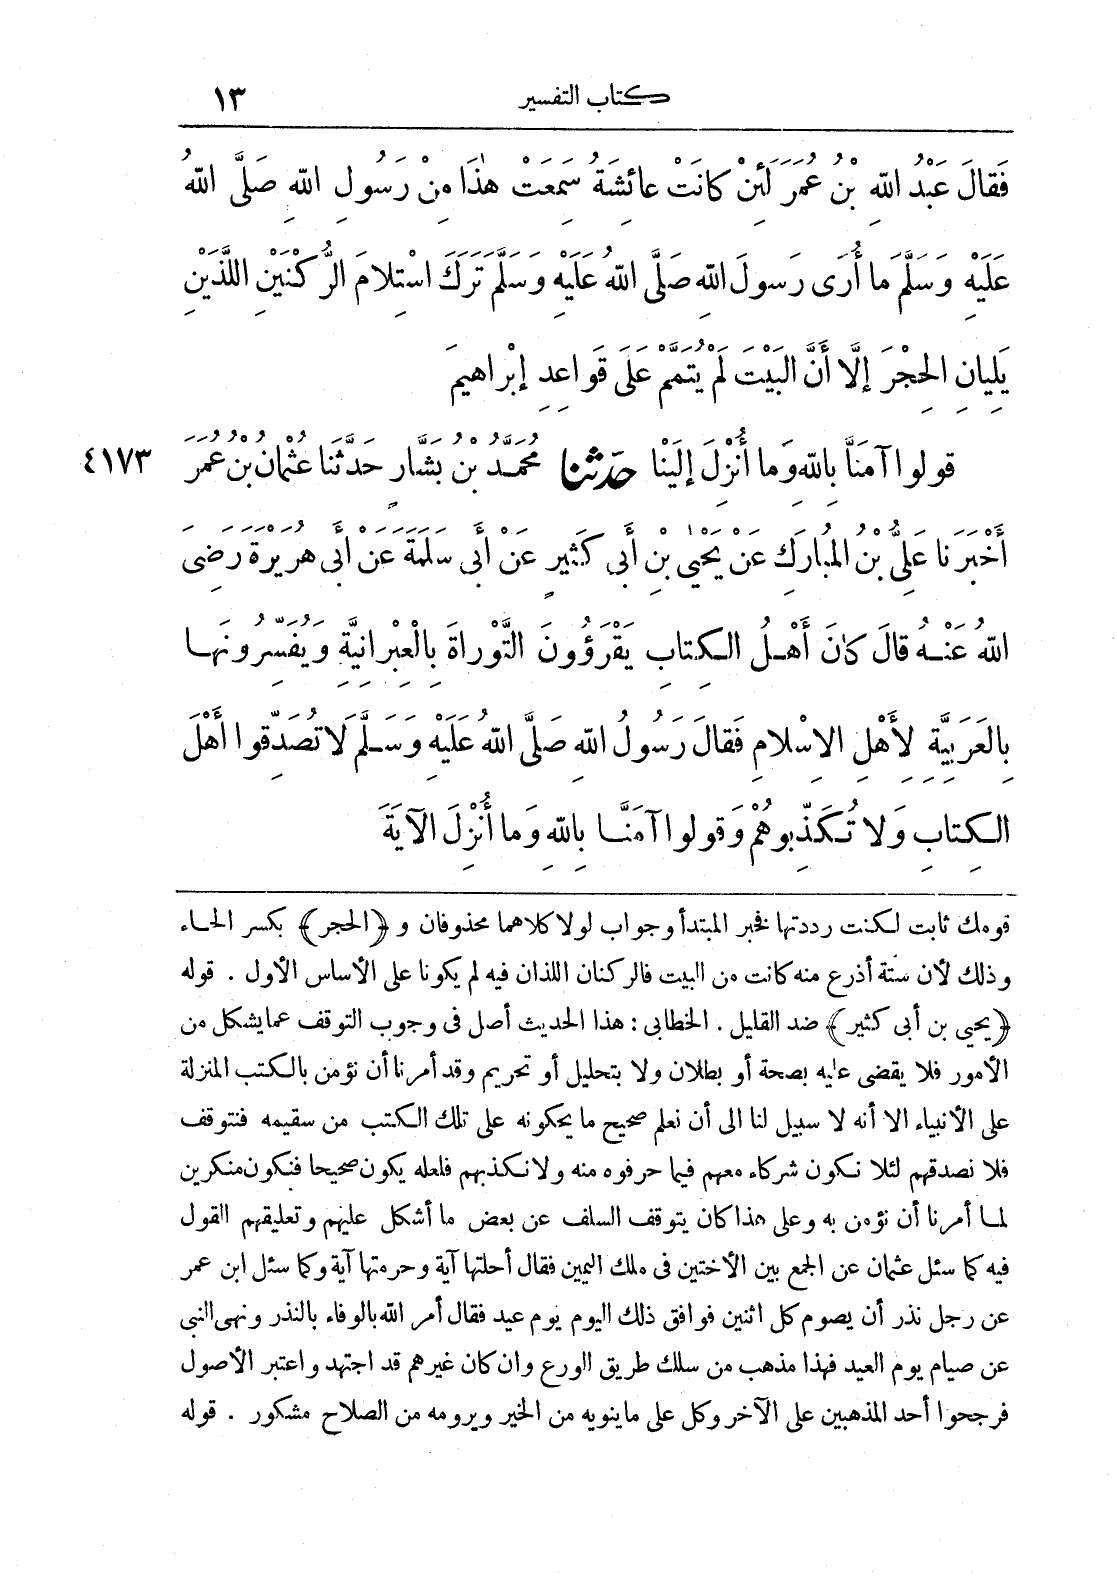 كتاب التفسير ١٣
فَقالَ عَبْدُ اللهِ بْنُ عُمَرَ لَئِنْ كانَتْ عائِشَةُ سَمِعَتْ هٰذا مِنْ رَسُولِ اللهِ صَلَّى اللهُ
عَلَيْهِ وَسَلَّمَ ما أُرَى رَسولَ اللهِ صَلَّى اللهُ عَلَيْهِ وَسَلَّمَ تَرَكَ اسْتِلامَ الرُّكْنَيْنِ اللَّذَيْنِ
يَلِيانِ الحِجْرَ إلَّا أَنَّ البَيْتَ لَمْ يُتَمَّمْ عَلَى قَواعِدِ إبْراهيمَ
قولوا آمَنَّا بِاللهِ وَما أُنْزِلَ إلَيْنا حَدَّثَنا مُحَمَّدُ بْنُ بَشَّارٍ حَدَّثَنا عُثْمانُ بْنُ عُمَرَ ٤١٧٣
أَخْبَرَنا عَلِيُّ بْنُ المُبارَكِ عَنْ يَحْيٰى بْنِ أَبى كَثِيرٍ عَنْ أَبى سَلَمَةَ عَنْ أَبى هُرَيْرَةَ رَضِىَ
اللهُ عَنْهُ قالَ كانَ أَهْلُ الكِتابِ يَقْرَؤُونَ التَّوْراةَ بِالْعِبْرانِيَّةِ وَيُفَسِّرُونَها
بِالعَرَبِيَّةِ لِأَهْلِ الاِسْلامِ فَقالَ رَسُولُ اللهِ صَلَّى اللهُ عَلَيْهِ وَسَلَّمَ لا تُصَدِّقوا أَهْلَ
الكِتابِ وَلا تُكَذِّبوهُمْ وَقولوا آمَنَّا بِاللهِ وَما أُنْزِلَ الآيَةَ
قومك ثابت لكنت رددتها فخبر المبتدأ وجواب لولا كلاهما محذوفان و ﴿الحجر﴾ بكسر الحاء
وذلك لأن ستة أذرع منه كانت من البيت فالركنان اللذان فيه لم يكونا على الأساس الأول . قوله
﴿يحيى بن أبى كثير﴾ ضد القليل . الخطابى : هذا الحديث أصل فى وجوب التوقف عما يشكل من
الأمور فلا يقضى عليه بصحة أو بطلان ولا بتحليل أو تحريم وقد أمرنا أن نؤمن بالكتب المنزلة
على الأنبياء الا أنه لا سبيل لنا الى أن نعلم صحيح ما يحكونه على تلك الكتب من سقيمه فنتوقف
فلا نصدقهم لئلا نكون شركاء معهم فيما حرفوه منه ولا نكذبهم فلعله يكون صحيحا فنكون منكرين
لما أمرنا أن نؤمن به وعلى هذا كان يتوقف السلف عن بعض ما أشكل عليهم وتعليقهم القول
فيه كما سئل عثمان عن الجمع بين الأختين فى ملك اليمين فقال أحلتها آية وحرمتها آية وكما سئل ابن عمر
عن رجل نذر أن يصوم كل اثنين فوافق ذلك اليوم يوم عيد فقال أمر الله بالوفاء بالنذر ونهى النبى
عن صيام يوم العيد فهذا مذهب من سلك طريق الورع وان كان غيرهم قد اجتهد واعتبر الأصول
فرجحوا أحد المذهبين على الآخر وكل على ما ينويه من الخير ويرومه من الصلاح مشكور . قوله